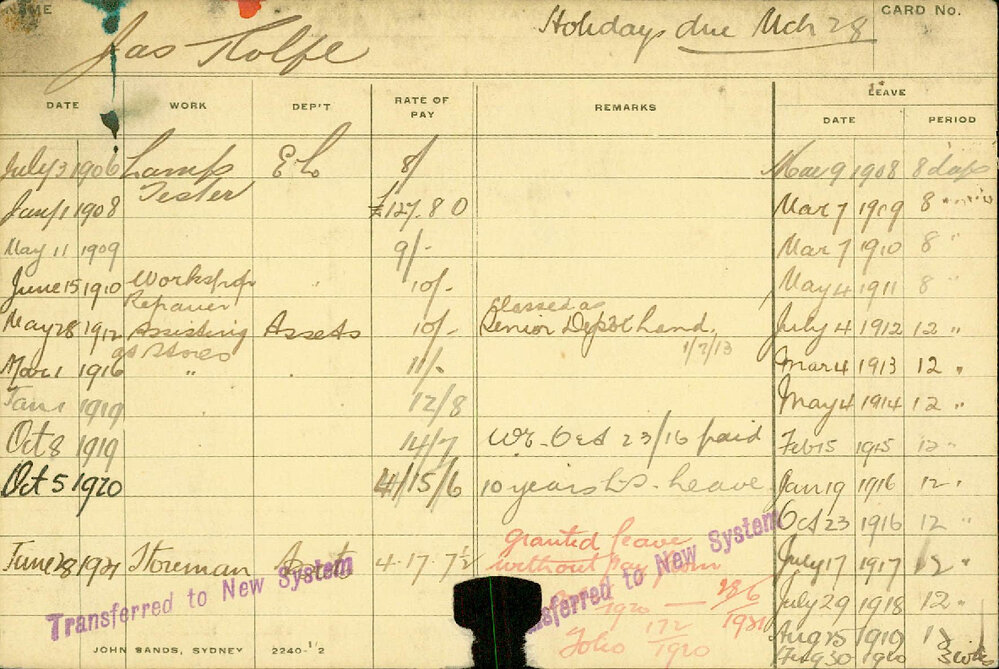 NAME
Jas Rolfe
Holidays due Mch 28
CARD No.
DATE WORK DEP'T RATE OF PAY REMARKS LEAVE
DATE PERIOD
July 3 1906 Lamp Tester E L 8/ Mar 9 1908 8 days
Jany 1 1908 £127.8 0 Mar 7 1909 8
May 11 1909 9/- Mar 7 1910 8 "
June 15 1910 Workshop Repairer " 10/- May 4 1911 8 "
May 28 1912 Assisting at Stores Assets 10/- Classed as Senior Depôt hand. 1/7/13 July 4 1912 12 "
Mar 1 1916 " 11/- Mar 4 1913 12 "
Jan 1 1919 12/8 May 4 1914 12 "
Oct 8 1919 14/7 Wr. Oct 23/16 paid Feb 15 1915 12 "
Oct 5 1920 4/15/6 10 years L.S. Leave Jan 19 1916 12 "
Oct 23 1916 12 "
June 28 1921 Storeman Assets 4.17.7½ Granted leave without Pay from July 17 1917 12 "
Transferred to New System
sferred to New System
1920 — 28/6 1921 July 29 1918 12 "
Folio 172/1920 Aug 25 1919
30 1920 3 wks
JOHN SANDS, SYDNEY 2240-½